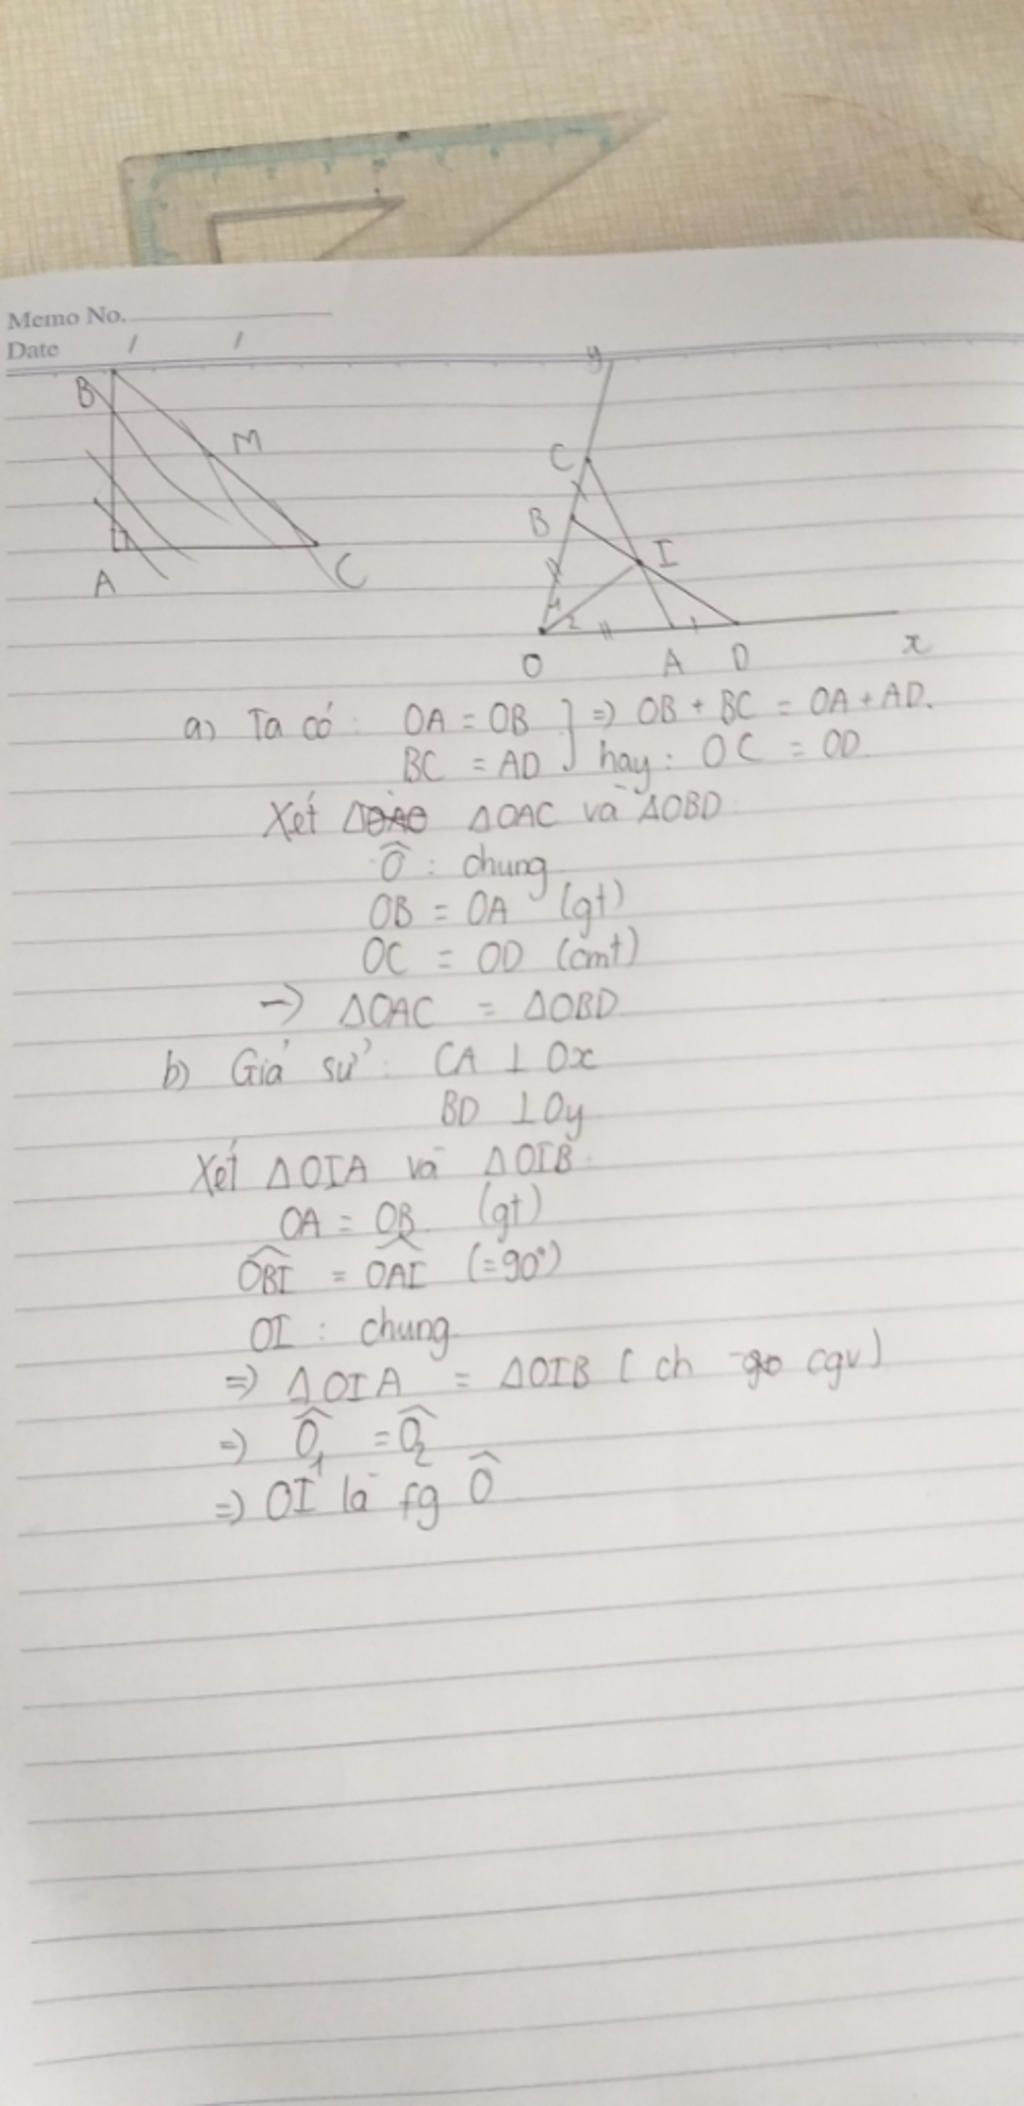 Memo No.
Date / /
B
M
A
C
y
C
B
I
1
2
O
A
D
x
a) Ta có: OA = OB } => OB + BC = OA + AD.
BC = AD } hay: OC = OD.
Xét ΔOAC và ΔOBD:
Ô : chung
OB = OA (gt)
OC = OD (cmt)
-> ΔOAC = ΔOBD.
b) Giả sử: CA ⊥ Ox
BD ⊥ Oy
Xét ΔOIA và ΔOIB:
OA = OB (gt)
OBI = OAI (=90°)
OI : chung
=> ΔOIA = ΔOIB (ch - cgv)
=> Ô1 = Ô2
=> OI là fg Ô